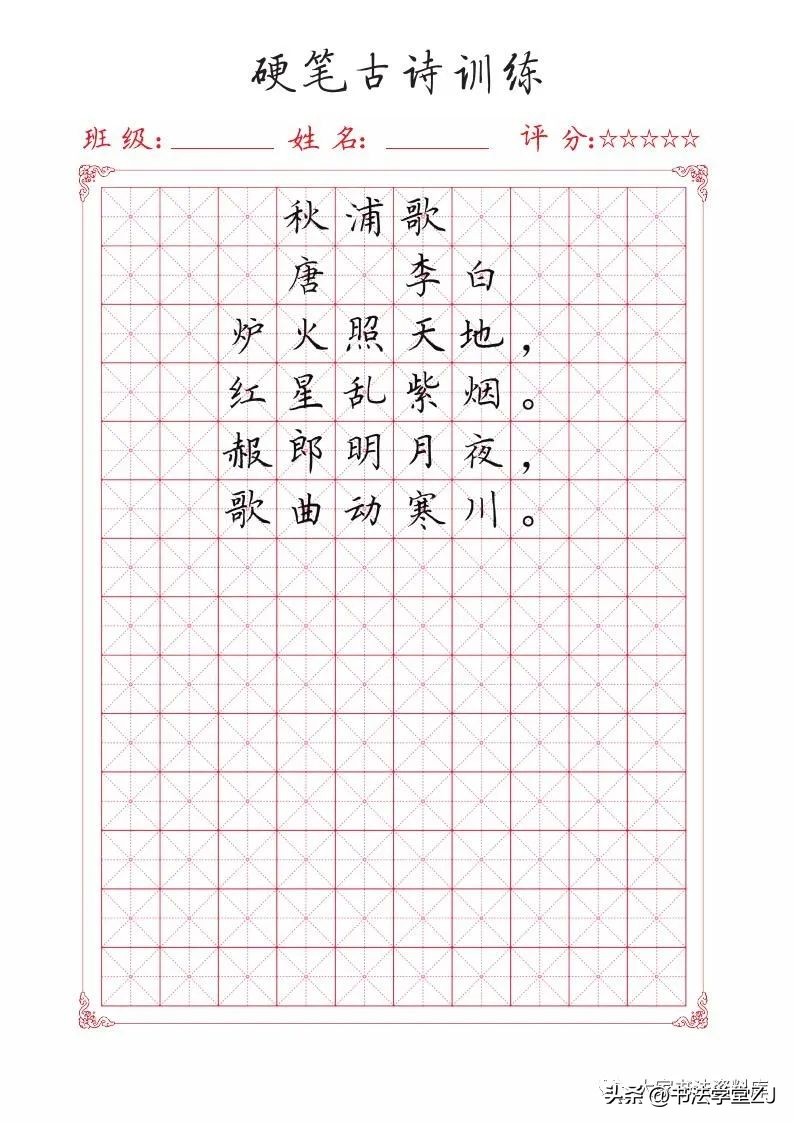 硬笔古诗训练
班级:________ 姓名:________ 评分:☆☆☆☆☆
秋浦歌
唐 李白
炉火照天地，
红星乱紫烟。
赧郎明月夜，
歌曲动寒川。
大家书法资料库
头条@书法学堂ZJ